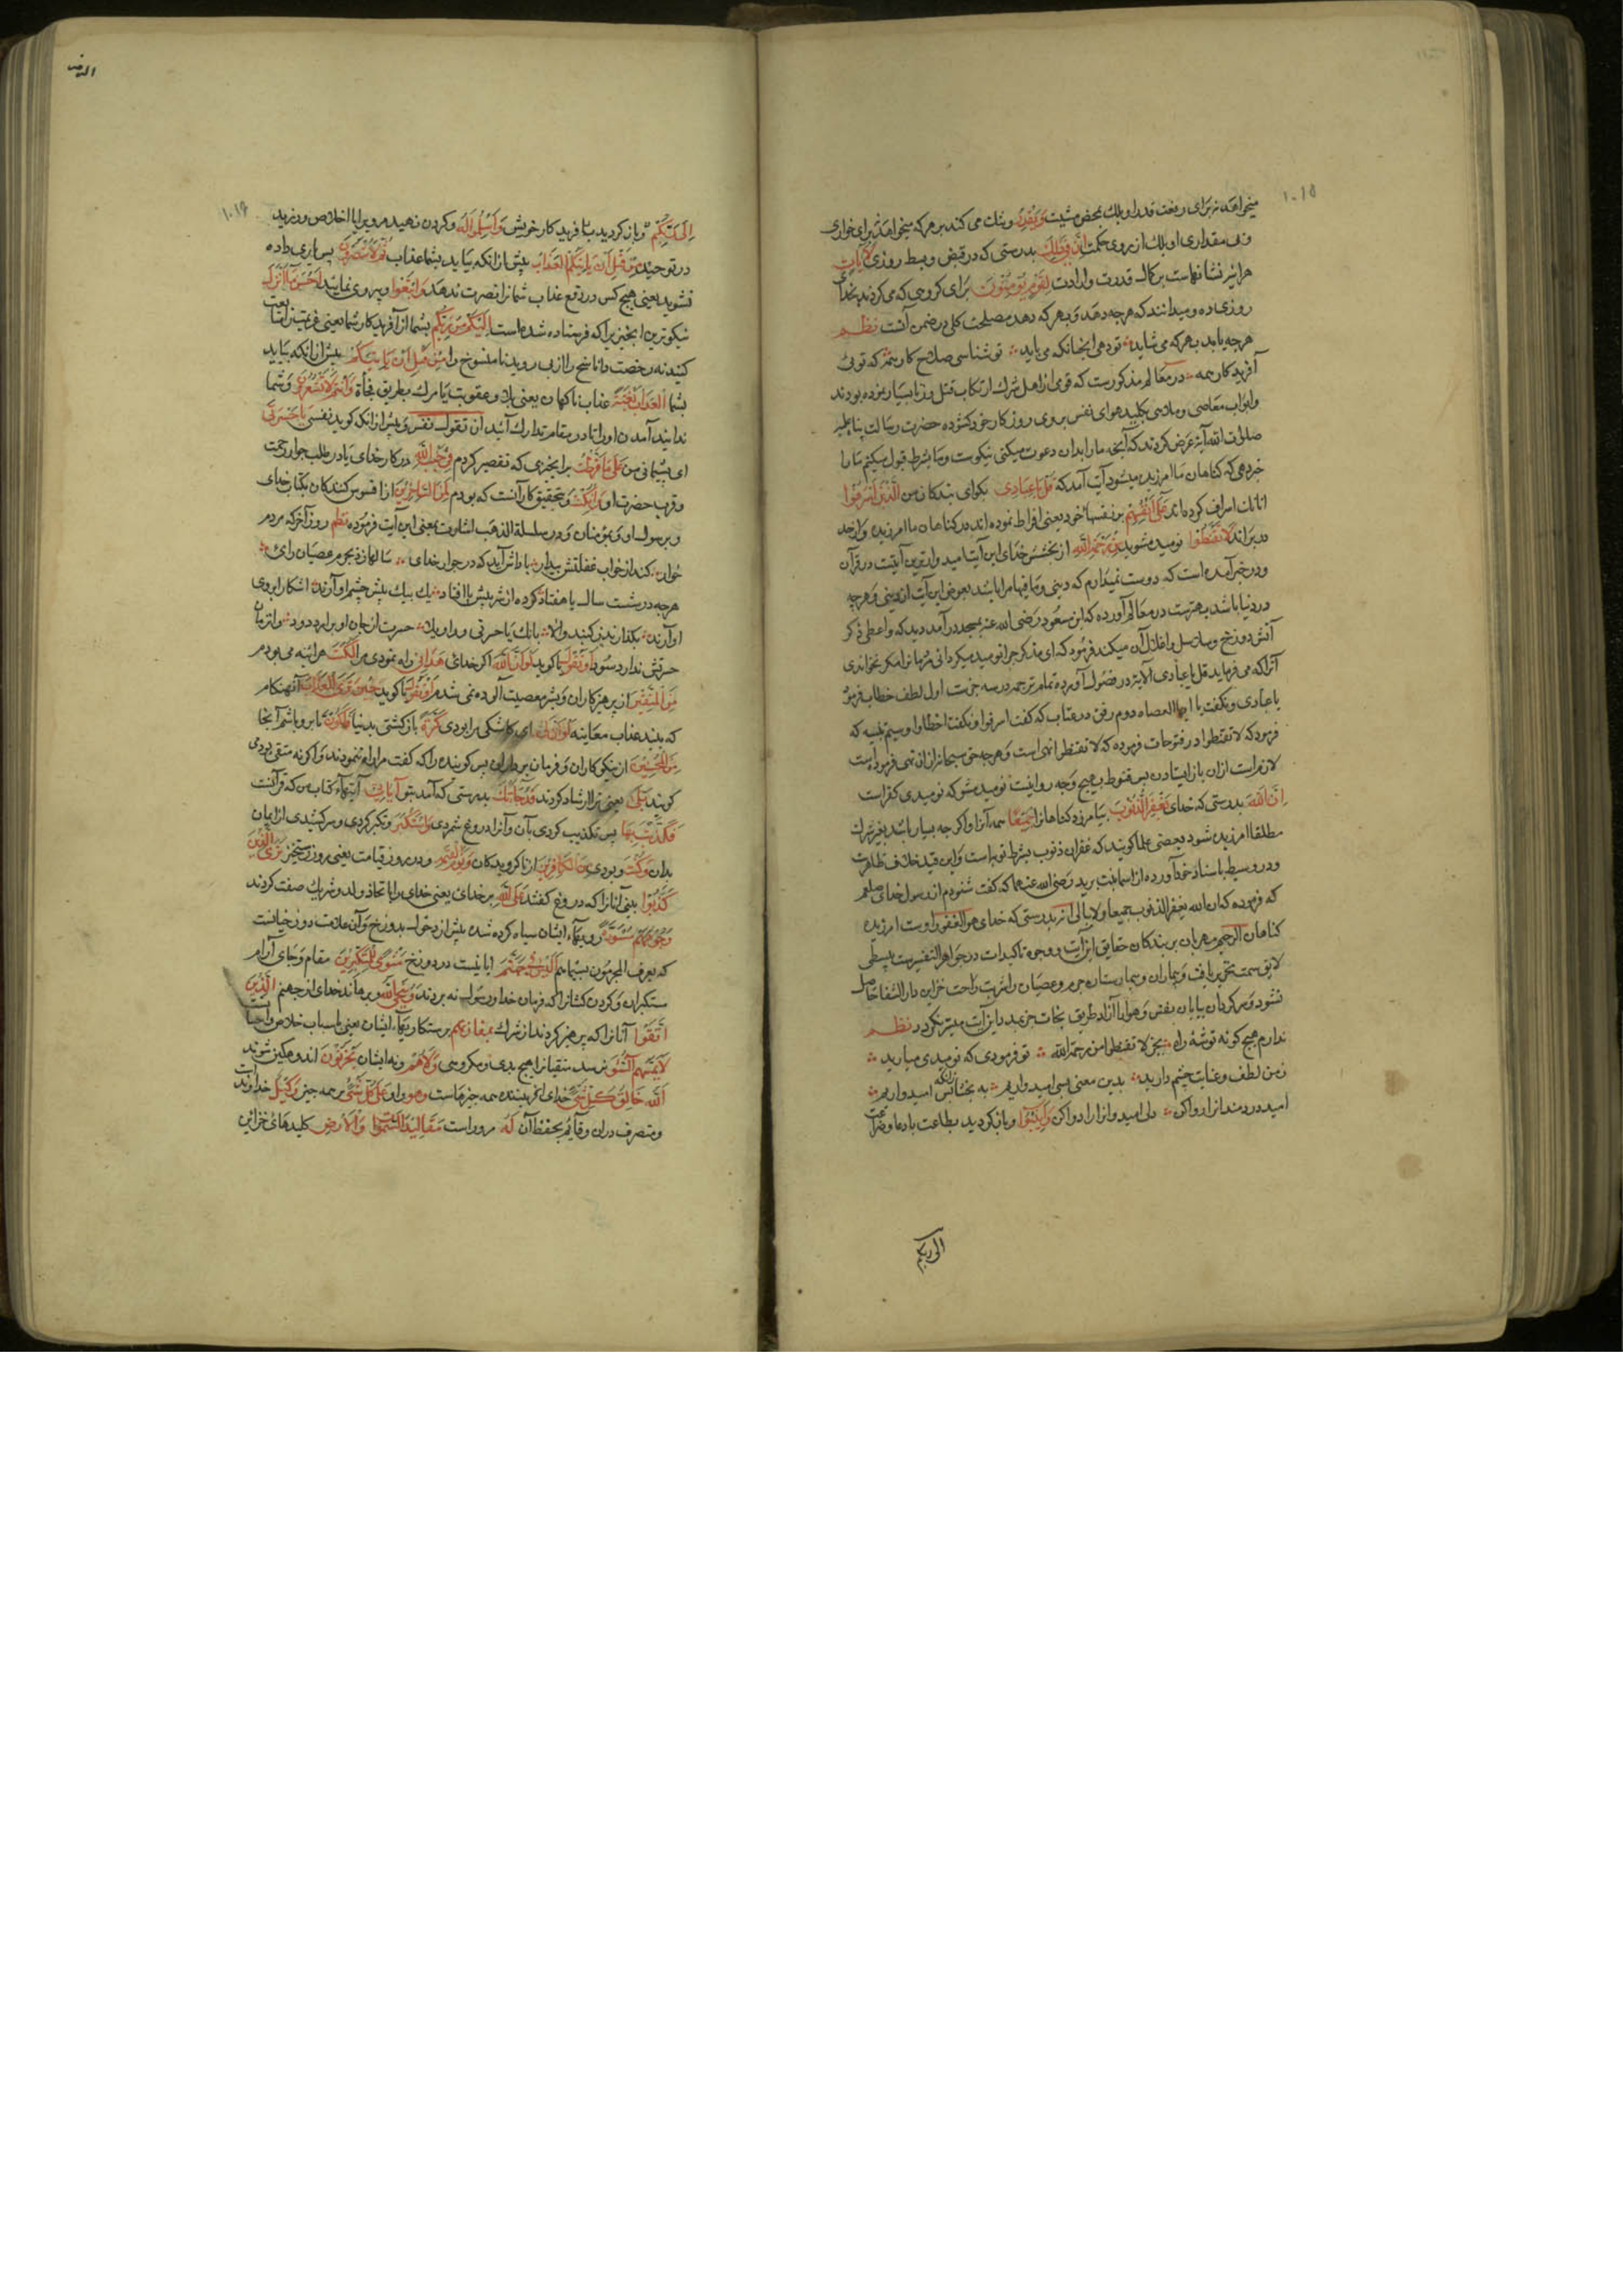 ۱۰۱۵
میخواهد نه برای رفعت قدر او بلکه بمحض مشیت وَيَقْدِرُ وتنك می کند بر هر که میخواهد نه برای خواری
وبی مقداری او بلک از روی حکمت اِنَّ فِي ذَلِكَ بدرستی که در قبض وبسط روزی لَآيَاتٍ
هر اینه نشانهاست بر کمال قدرت وارادت لِقَوْمٍ يُؤْمِنُونَ برای کروهی که می کروند بخدای
روزی ده ومیدانند که هرچه دهد وبهر که دهد مصلحت کلی در ضمن آنست نظم
هرچه باید بهر که می شاید تو دهی انچنانکه می باید تو شناسی صلاح کار همه که توئی
آفریدکار همه در معالم مذکورست که قومی از اهل شرك ارتکاب قتل وزنا بسیار نموده بودند
وابواب معاصی وملاهی بکلید هوای نفس بر وی روزکار خود کشوده حضرت رسالت پناه علیه
صلوات الله آیة عرض کردند که آنچه ما را بدان دعوت میکنی نیکوست وما بشرط قبول میکنیم که ما را
خبر دهی که کناهان ما امرزیده میشود آیت آمد که قُلْ يَا عِبَادِيَ بکو ای بندکان من الَّذِينَ أَسْرَفُوا
انانك اسراف کرده اند عَلَى أَنْفُسِهِمْ بر نفسهاء خود یعنی افراط نموده اند در کناهان ما امرزیده واز حد
در برده اند لَا تَقْنَطُوا نومید مشوید مِنْ رَحْمَةِ اللَّهِ از بخشش خدای این آیت امیدوارترین آیتست در قرآن
ودر خبر آمده است که دوست نمیدارم که دنیی وما فیها مرا باشد بعوض این آیت از دنیی وهرچه
در دنیا باشد بهترست در معالم آورده که ابن مسعود رضی الله عنه بمسجد در آمد دید که واعظی ذکر
آتش دوزخ وسلاسل واغلال آن میکند فرمود که ای مذکر چرا نومید میکردانی مردمانرا مکر نخواندی
آنرا که می فرماید قل یا عبادی الآیه در فصول آورده تمام ترجمه در سه جزست اول لطف خطاب فرمود
یا عبادی ونکفت یا ایها العصاه دوم رفق در عتاب که کفت اسرفوا ونکفت اخطاوا وسیم تنبیه که
فرمود که لا تقنطوا در فتوحات فرموده که لا تقنطوا نهی است وهرچه حق سبحانه از ان نهی فرموده است
لازم است ازان باز ایستادن پس قنوط بهیچ وجه روا نیست نومید مشو که نومیدی کفر است
اِنَّ اللَّهَ بدرستی که خدای يَغْفِرُ الذُّنُوبَ بیامرزد کناهانرا جَمِيعًا همه آنرا واکرچه بسیار باشد بغیر شرك
مطلقا امرزیده شود بعضی علما کویند که غفران ذنوب بشرط توبه است واین قید خلاف ظاهرست
ودر وسیط باسناد خود آورده از اسما بنت یزید رضی الله عنهما که کفت شنودم از رسول خدای صلعم
که فرموده که ان الله یغفر الذنوب جمیعا ولا یبالی اِنَّهُ بدرستی که خدای هُوَ الْغَفُورُ اوست امرزنده
کناهان الرَّحِيمُ مهربان بر بندکان حقایق این آیت ووجوه تاکیدات در جواهر التفسیر ببسطی
لایق سمت تحریر یافت وبیماران بیمارستان جرم وعصیانرا شربت راحت جز این دار الشفا حاصل
نشود وسرکردان بیابان نفس وهوا آزاد طریق نجات جز بمدد این آیت میسر نکردد نظم
ندارم هیچ کونه توشه راه بجز لا تقنطوا من رحمة الله تو فرمودی که نومیدی میارید
زمن لطف وعنایت چشم دارید بدین معنی بسی امیدواریم به بخشا زانکه بس امیدواریم
امید دردمندانرا روا کن دل امیدوارانرا دوا کن وَأَنِيبُوا وباز کردید بطاعت با دعا وضراعت
الی ربکم
۱۰۱۶
اِلَى رَبِّكُمْ وباز کردید باآفریدکار خویش وَأَسْلِمُوا لَهُ وکردن نهید مر ویرا با اخلاص ورزید
در توحید مِنْ قَبْلِ أَنْ يَأْتِيَكُمُ الْعَذَابُ پیش از انکه بیاید بشما عذاب ثُمَّ لَا تُنْصَرُونَ پس یاری داده
نشوید یعنی هیچ کس در دفع عذاب شما را نصرت ندهد وَاتَّبِعُوا وپیروی نمایند أَحْسَنَ مَا أُنْزِلَ
نیکوترین انچیزیرا که فرستاده شده است إِلَيْكُمْ مِنْ رَبِّكُمْ بشما از آفریدکار شما یعنی عزیمترا متابعت
کنید نه رخصت را ناسخ را از پی روید نه منسوخ را مِنْ قَبْلِ أَنْ يَأْتِيَكُمُ پیش از انکه بیاید
بشما الْعَذَابُ بَغْتَةً عذاب ناکهان یعنی بلا وعقوبت یا مرك بطریق فجأة وَأَنْتُمْ لَا تَشْعُرُونَ وشما
ندانید آمدن اورا تا در مقام تدارك آئید أَنْ تَقُولَ نَفْسٌ پیش از انك کوید نفسی يَا حَسْرَتَى
ای پشیمانی من عَلَى مَا فَرَّطْتُ بر انچیزی که تقصیر کردم فِي جَنْبِ اللَّهِ در کار خدای یا در طلب جوار رحمت
وقرب حضرت او وَإِنْ كُنْتُ وبتحقیق کار آنست که بودم لَمِنَ السَّاخِرِينَ از افسوس کنندکان بکتاب خدای
وبرسول او وبمؤمنان ودر سلسلة الذهب اشارت بمعنی این آیت فرموده نظم روز آخر که مردم
خوار کند از خواب غفلتش بیدار باداش آید که در جوار خدای سالها زد بجرم عصیان رائ
هرچه در شست سال یا هفتاد کرده از شر پیش یا افتاد یك بیك پیش چشم او آرند اشکار ابروی
او آرند بکذارند بر کشیند والا بانك یا حسرتی وواویلا حسرت از جان او برارد دود واثر با
حسرتش ندارد سود أَوْ تَقُولَ یا کوید لَوْ أَنَّ اللَّهَ اکر خدائ هَدَانِي راه نمودی مرا لَكُنْتُ هر اینه می بودم
مِنَ الْمُتَّقِينَ از پرهیزکاران وبشر معصیت آلوده نمی شدم أَوْ تَقُولَ یا کوید حِينَ تَرَى الْعَذَابَ آنهنکام
که بیند عذاب معاینه لَوْ أَنَّ لِي ای کاشکی مرا بودی كَرَّةً بازکشتی بدنیا فَأَكُونَ تا بروم باشم آنجا
مِنَ الْمُحْسِنِينَ از نیکوکاران وفرمان برداران پس کوینده را که کفت مرا راه ننمودند واکرنه متقی بودمی
کویند بَلَى یعنی ترا ارشاد کردند قَدْ جَاءَتْكَ بدرستی که آمد بتو آيَاتِي آیتهاء کتاب من که قرآنست
فَكَذَّبْتَ بِهَا پس تکذیب کردی بآن وآنرا دروغ شمردی وَاسْتَكْبَرْتَ وتکبر کردی وسرکشیدی از ایمان
بدان وَكُنْتَ وبودی مِنَ الْكَافِرِينَ از ناکرویدکان وَيَوْمَ الْقِيَامَةِ ودر روز قیامت یعنی روز رستخیز تَرَى الَّذِينَ
كَذَبُوا بینی آنانرا که دروغ کفتند عَلَى اللَّهِ بر خدائ یعنی خدای را باتخاذ ولد وشریك صفت کردند
وُجُوهُهُمْ مُسْوَدَّةٌ رویهاء ایشان سیاه کرده شده پیش از دخول بدوزخ وآن علامت دوزخیانست
که یعرف المجرمون بسیماهم أَلَيْسَ فِي جَهَنَّمَ ایا نیست در دوزخ مَثْوًى لِلْمُتَكَبِّرِينَ مقام وجای آرام
متکبران وکردن کشانرا که فرمان خدا ورسول نه بردند وَيُنَجِّي اللَّهُ وبرهاند خدای از جهنم الَّذِينَ
اتَّقَوْا آنانرا که پرهیز کردند از شرك بِمَفَازَتِهِمْ برستکاریهاء ایشان یعنی باسباب خلاص ونجات
لَا يَمَسُّهُمُ السُّوءُ نرسد متقیانرا هیچ بدی ومکروهی وَلَا هُمْ ونه ایشان يَحْزَنُونَ اندوهکین شوند
اللَّهُ خَالِقُ كُلِّ شَيْءٍ خدای آفریننده همه چیزهاست وَهُوَ واو عَلَى كُلِّ شَيْءٍ بر همه چیز وَكِيلٌ خداوندست
ومتصرف دران وقایم بحفظ آن لَهُ مرو راست مَقَالِيدُ السَّمَوَاتِ وَالْأَرْضِ کلیدهائ خزاین